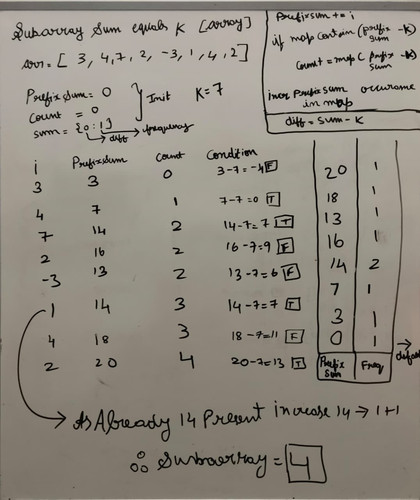 Subarray Sum equals K [array]
arr = [ 3, 4, 7, 2, -3, 1, 4, 2 ]
Prefix Sum = 0
count = 0
sum = {0 : 1}
Init
K = 7
diff
frequency
Prefix sum += i
if map contain (prefix sum - K)
count = map (prefix sum - K)
incr prefix sum occurance
in map
diff = sum - K
i Prefix Sum Count Condition
3 3 0 3-7 = -4 F
4 7 1 7-7 = 0 T
7 14 2 14-7 = 7 T
2 16 2 16-7 = 9 F
-3 13 2 13-7 = 6 F
1 14 3 14-7 = 7 T
4 18 3 18-7 = 11 F
2 20 4 20-7 = 13 T
20 1
18 1
13 1
16 1
14 2
7 1
3 1
0 1 → default
Prefix Sum Freq
→ As Already 14 Present increase 14 → 1+1
∴ Subarray = 4